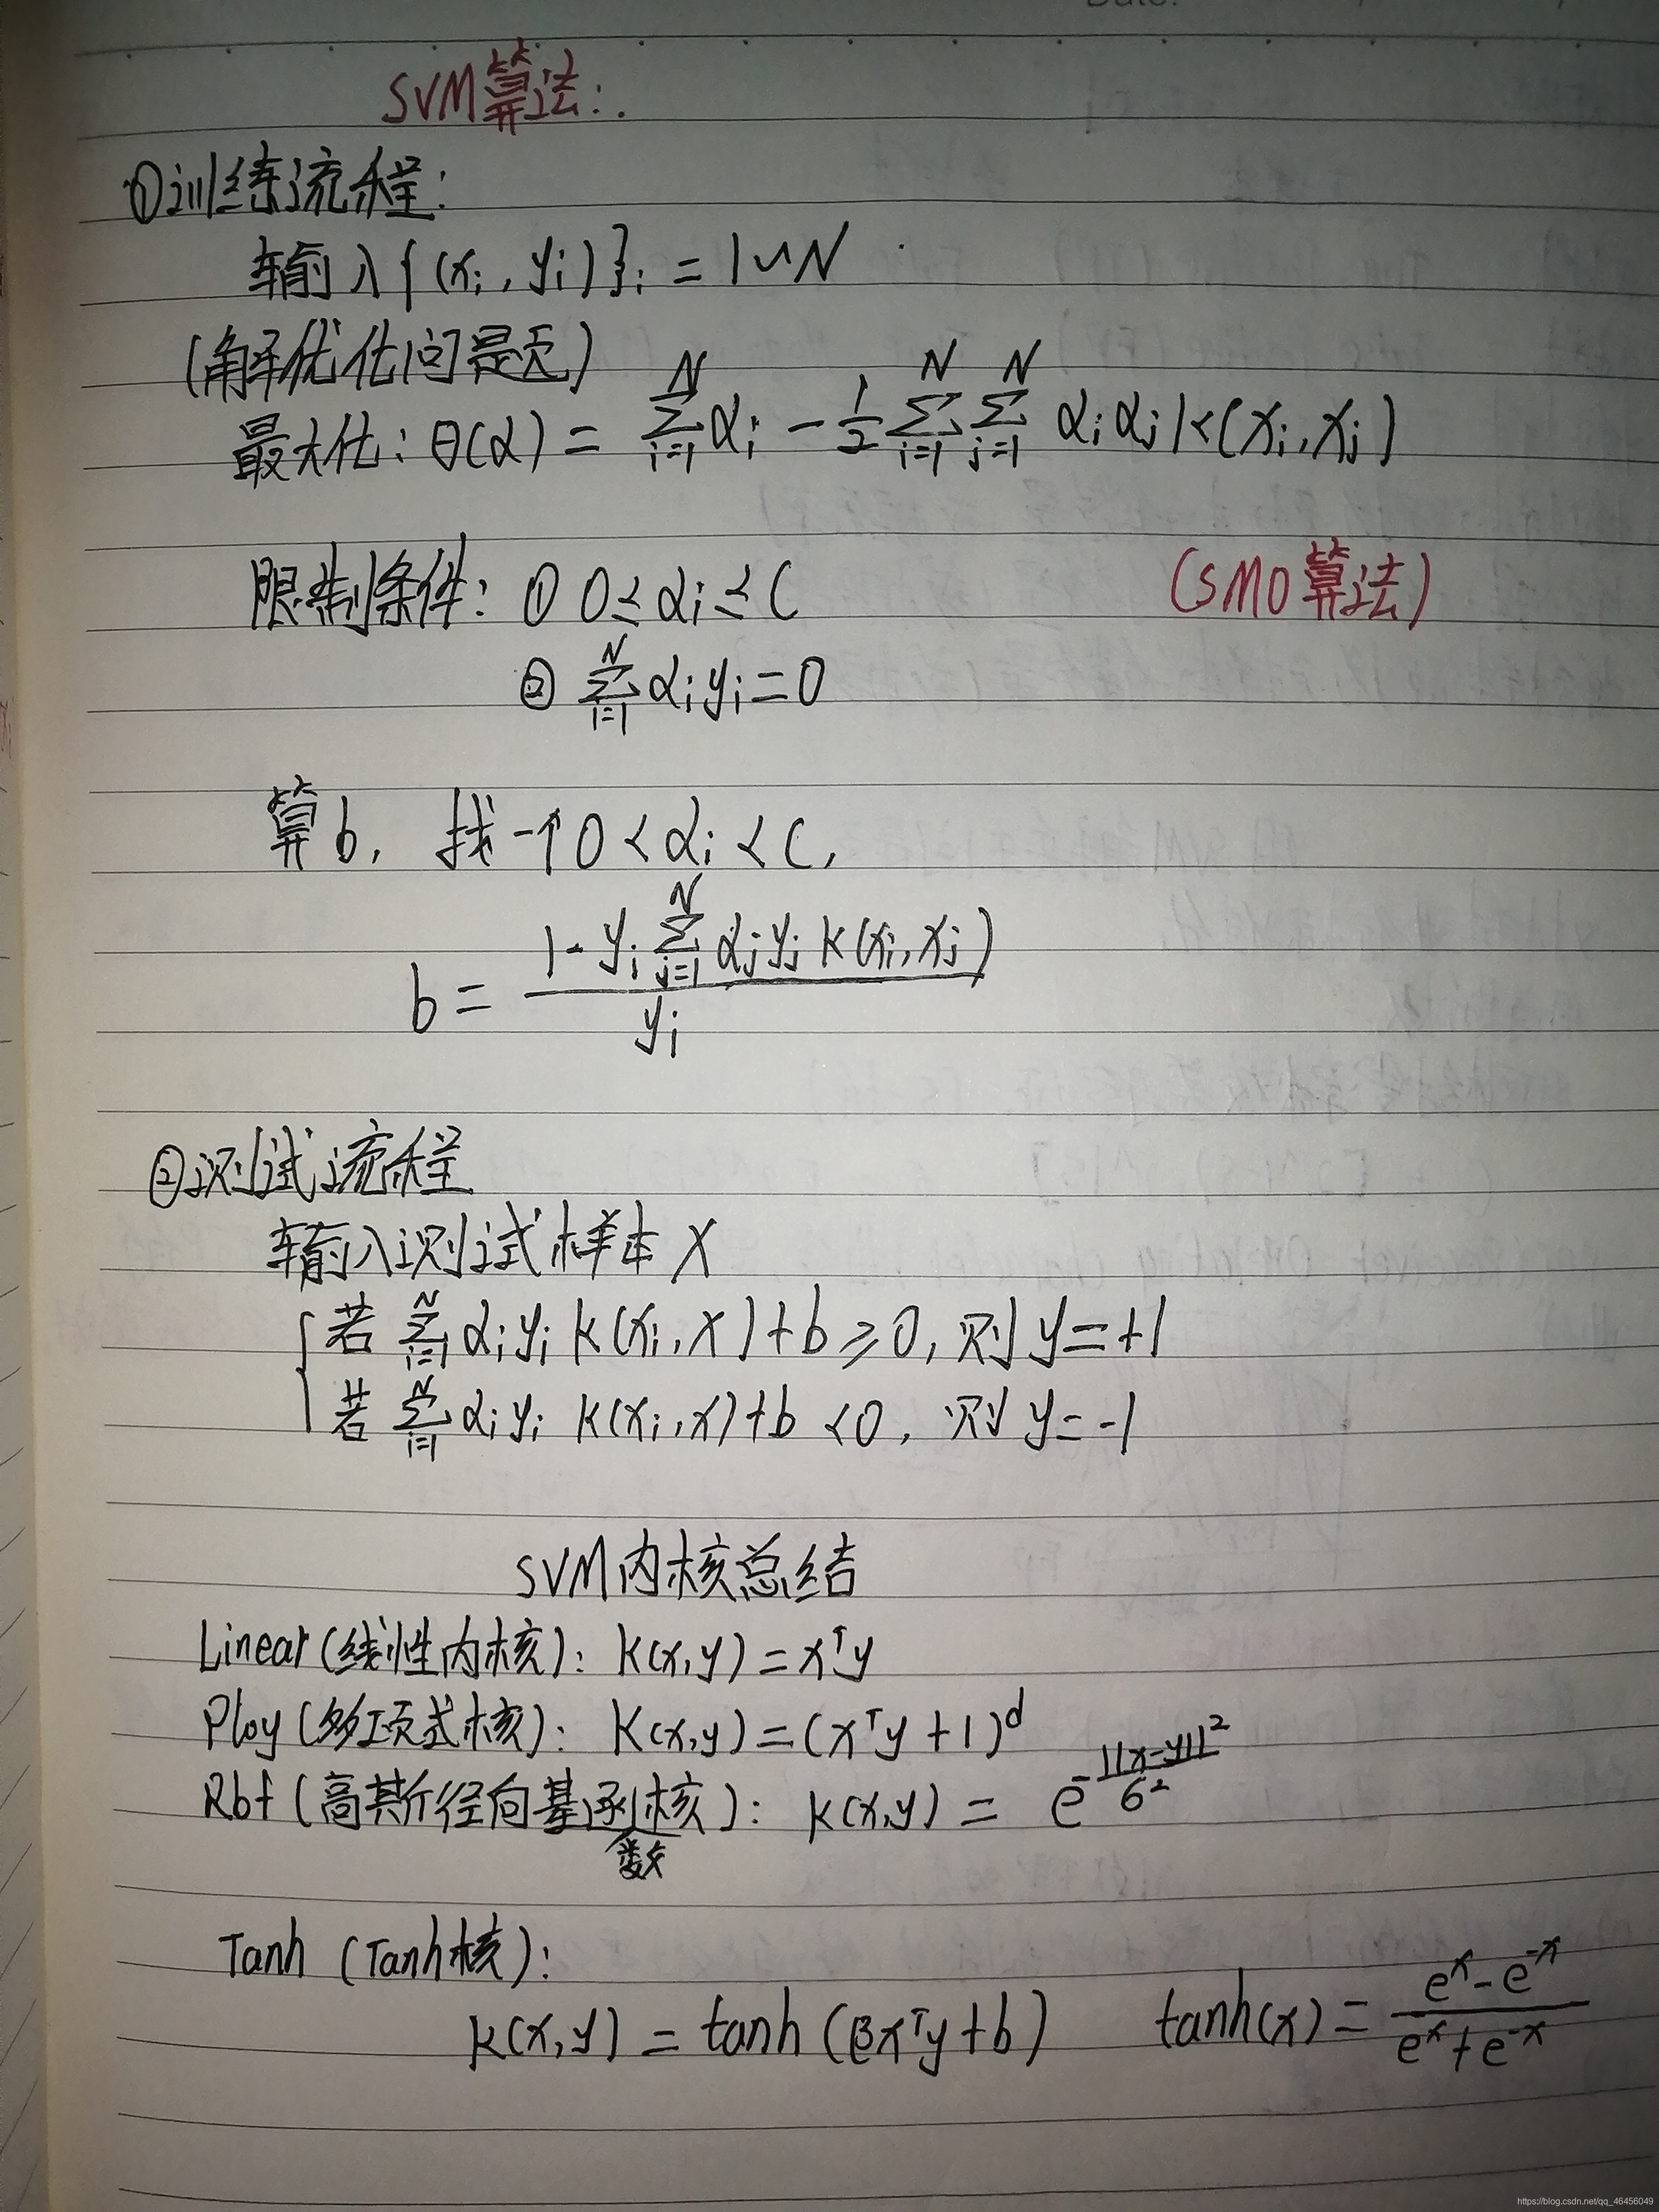 SVM算法:.
①训练流程:
输入{(xi,yi)}i=1~N
(解优化问题)
最大化:θ(α)=∑_{i=1}^{N}αi-1/2∑_{i=1}^{N}∑_{j=1}^{N}αiαjK(xi,xj)
限制条件:①0≤αi≤C (SMO算法)
②∑_{i=1}^{N}αiyi=0
算b,找一个0<αi<C,
b=(1-yi∑_{j=1}^{N}αjyjK(xi,xj))/yi
②测试流程
输入测试样本X
若∑_{i=1}^{N}αiyiK(xi,x)+b≥0,则y=+1
若∑_{i=1}^{N}αiyiK(xi,x)+b<0,则y=-1
SVM内核总结
Linear(线性内核):K(x,y)=x^Ty
Ploy(多项式核):K(x,y)=(x^Ty+1)^d
Rbf(高斯径向基函数核):K(x,y)=e^{-||x-y||²/σ²}
Tanh(Tanh核):
K(x,y)=tanh(βx^Ty+b) tanh(x)=(e^x-e^{-x})/(e^x+e^{-x})
https://blog.csdn.net/qq_46456049